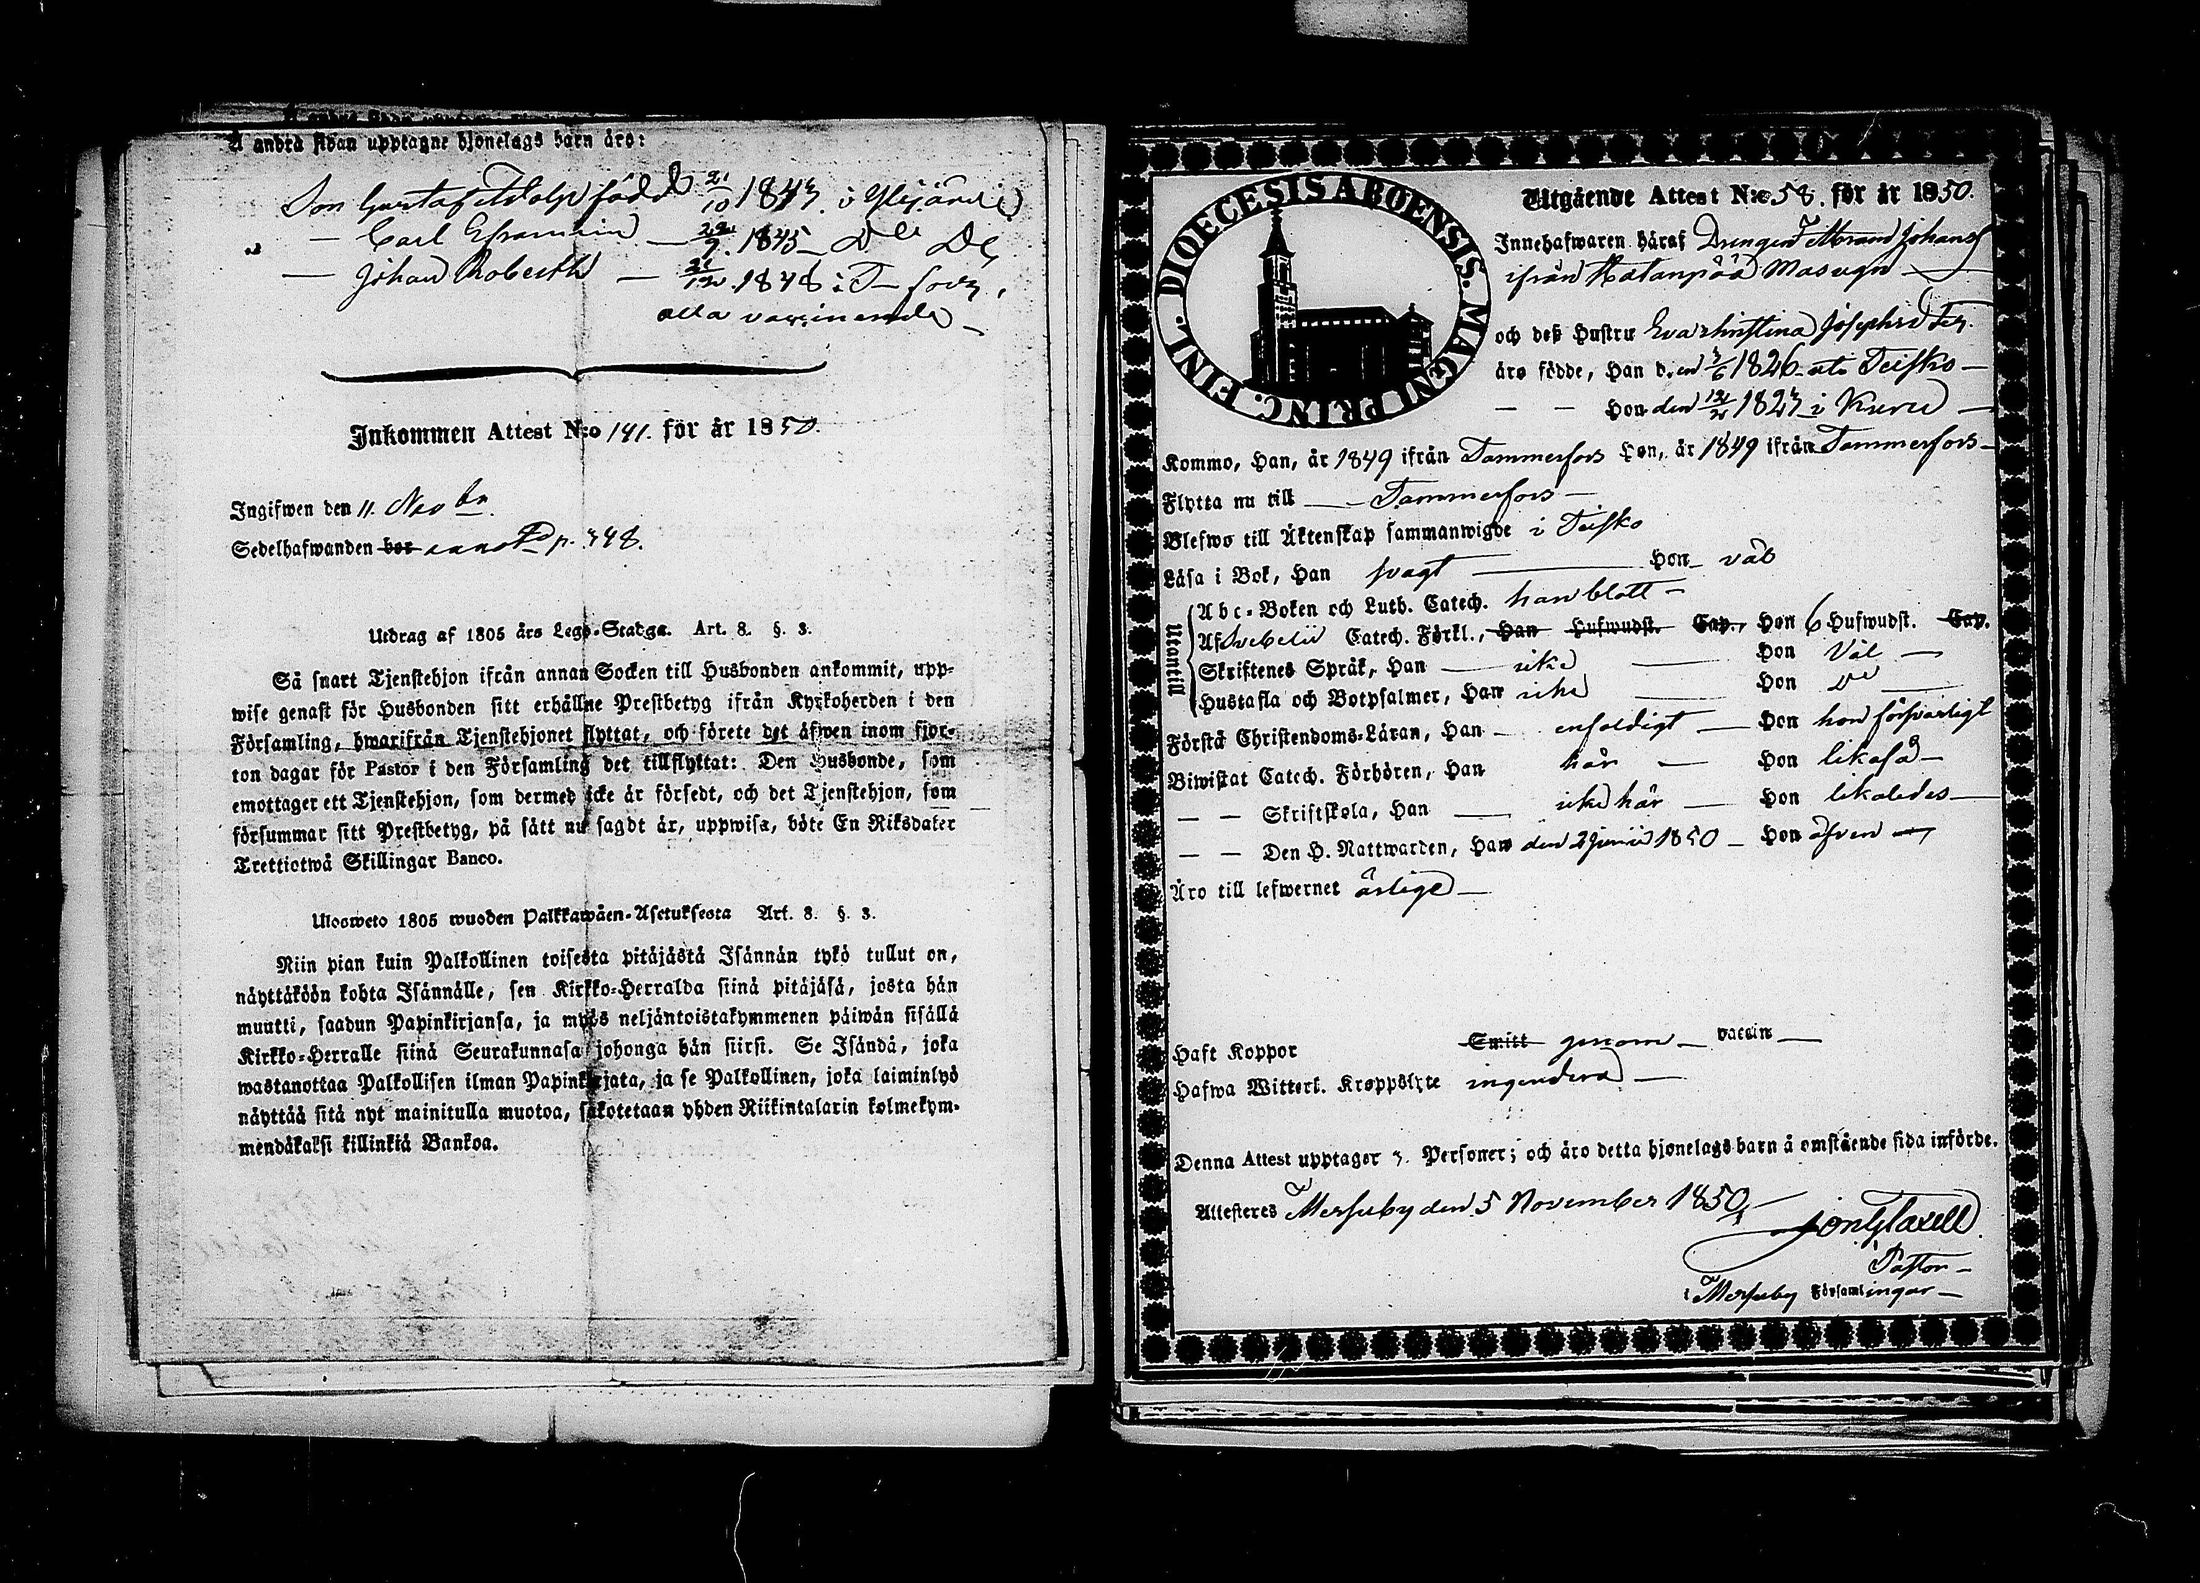 Å andra sidan upptagne hjonelags barn äro:
Son Gustaf Adolf född 21/10 1843. i Ylöjärvi
— Carl Efraim — 22/9. 1845 — Do Do
— Johan Robert — 21/12. 1848 i T-fors,
alla vaccinerade —
Inkommen Attest N:o 141. för år 1850.
Ingifwen den 11. Novbr.
Sedelhafwanden bor annot. p. 348.
Utdrag af 1805 års Lego-Stadga. Art. 8. §. 3.
Så snart Tjenstehjon ifrån annan Socken till Husbonden ankommit, upp-
wise genast för Husbonden sitt erhållne Prestbetyg ifrån Kyrkoherden i den
Församling, hwarifrån Tjenstehjonet flyttat, och förete det äfwen inom fjor-
ton dagar för Pastor i den Församling det tillflyttat: Den Husbonde, som
emottager ett Tjenstehjon, som dermed icke är försedt, och det Tjenstehjon, som
försummar sitt Prestbetyg, på sätt nu sagdt är, uppwisa, böte En Riksdaler
Trettiotwå Skillingar Banco.
Ulosweto 1805 wuoden Palkkawäen-Asetuksesta Art. 8. §. 3.
Niin pian kuin Palkollinen toisesta pitäjästä Isännän tykö tullut on,
näyttäköön kohta Isännälle, sen Kirkko-Herralda siinä pitäjäsä, josta hän
muutti, saadun Papinkirjansa, ja myös neljäntoistakymmenen päiwän sisällä
Kirkko-Herralle siinä Seurakunnasa johonga hän siirsi. Se Isändä, joka
wastanottaa Palkollisen ilman Papinkirjata, ja se Palkollinen, joka laiminlyö
näyttää sitä nyt mainitulla muotoa, sakotetaan yhden Riikintalarin kolmekym-
mendäkaksi killinkiä Bankoa.
DIOECESIS ABOENSIS. MAGNI PRINC. FINL.
Utgående Attest N:o 58. för år 1850.
Innehafwaren häraf Drengen Abram Johansf
ifrån Hatanpää Masugn —
och deß Hustru Eva Christina Josephsdr.
äro födde, Han den 3/6 1826 uti Teisko —
— — Hon den 1823 i Kuru —
Kommo, Han, år 1849 ifrån Tammerfors Hon, år 1849 ifrån Tammerfors —
Flytta nu till — Tammerfors —
Blefwo till Äktenskap sammanwigde i Teisko
Läsa i Bok, Han svagt — Hon väl
Utantill
Abc-Boken och Luth. Catech. han blott —
Af Svebelii Catech. Förkl., Han Hufwudst. Cap., Hon 6 Hufwudst. Cap.
Skriftenes Språk, Han — icke — Hon Väl —
Hustafla och Botpsalmer, Han icke — Hon Do —
Förstå Christendoms-Läran, Han — enfaldigt — Hon hon försvarligt
Biwistat Catech. Förhören, Han här — Hon likaså —
— — Skriftskola, Han — icke här — Hon likaledes —
— — Den H. Nattwarden, Han den 2 Junii 1850 — Hon äfven —
Äro till lefwernet ärlige —
Haft Koppor Smitt genom — vaccin —
Hafwa Witterl. Kroppslyte ingendera —
Denna Attest upptager 3. Personer; och äro detta hjonelags barn å omstående sida införde.
Attesteras Messuby den 5 November 1850
Jon Glaxell.
Pastor —
i Messuby Församlingar —